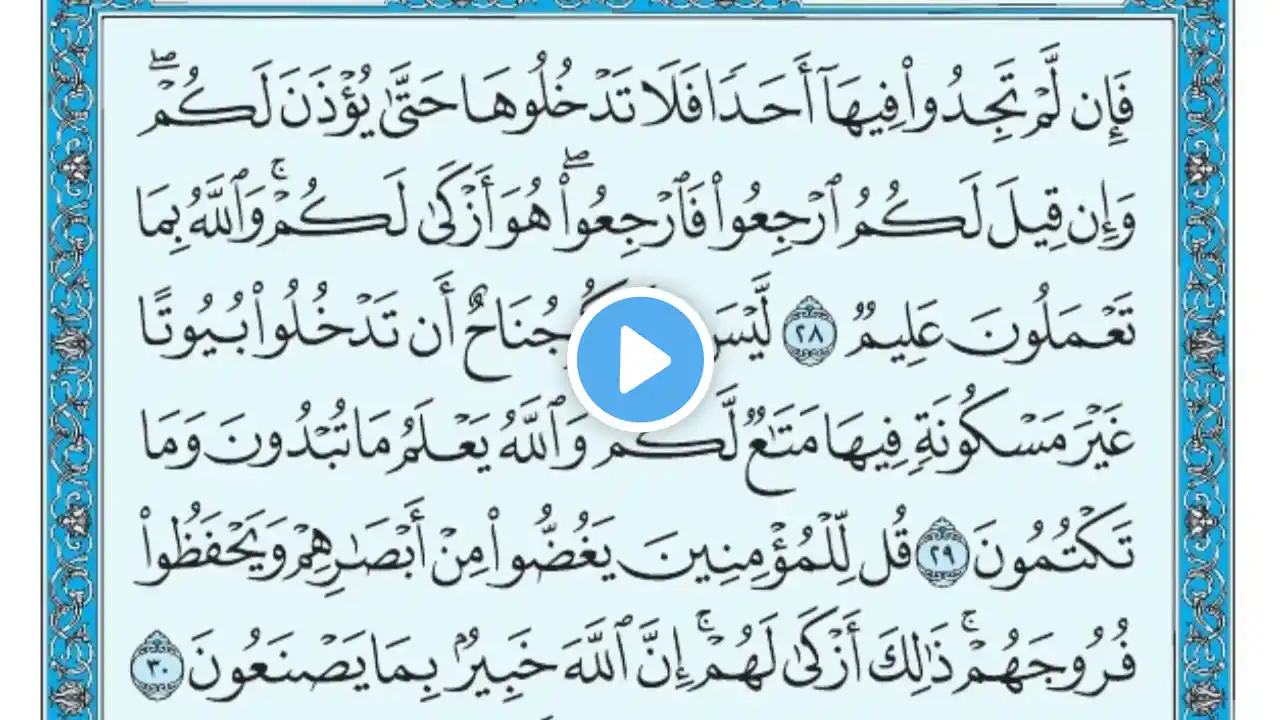 فَإِن لَّمْ تَجِدُوا۟ فِيهَآ أَحَدًا فَلَا تَدْخُلُوهَا حَتَّىٰ يُؤْذَنَ لَكُمْ ۖ
وَإِن قِيلَ لَكُمُ ٱرْجِعُوا۟ فَٱرْجِعُوا۟ ۖ هُوَ أَزْكَىٰ لَكُمْ ۚ وَٱللَّهُ بِمَا
تَعْمَلُونَ عَلِيمٌ ٢٨ لَّيْسَ جُنَاحٌ أَن تَدْخُلُوا۟ بُيُوتًا
غَيْرَ مَسْكُونَةٍ فِيهَا مَتَـٰعٌ لَّكُمْ وَٱللَّهُ يَعْلَمُ مَا تُبْدُونَ وَمَا
تَكْتُمُونَ ٢٩ قُل لِّلْمُؤْمِنِينَ يَغُضُّوا۟ مِنْ أَبْصَـٰرِهِمْ وَيَحْفَظُوا۟
فُرُوجَهُمْ ۚ ذَٰلِكَ أَزْكَىٰ لَهُمْ ۚ إِنَّ ٱللَّهَ خَبِيرٌۢ بِمَا يَصْنَعُونَ ٣٠